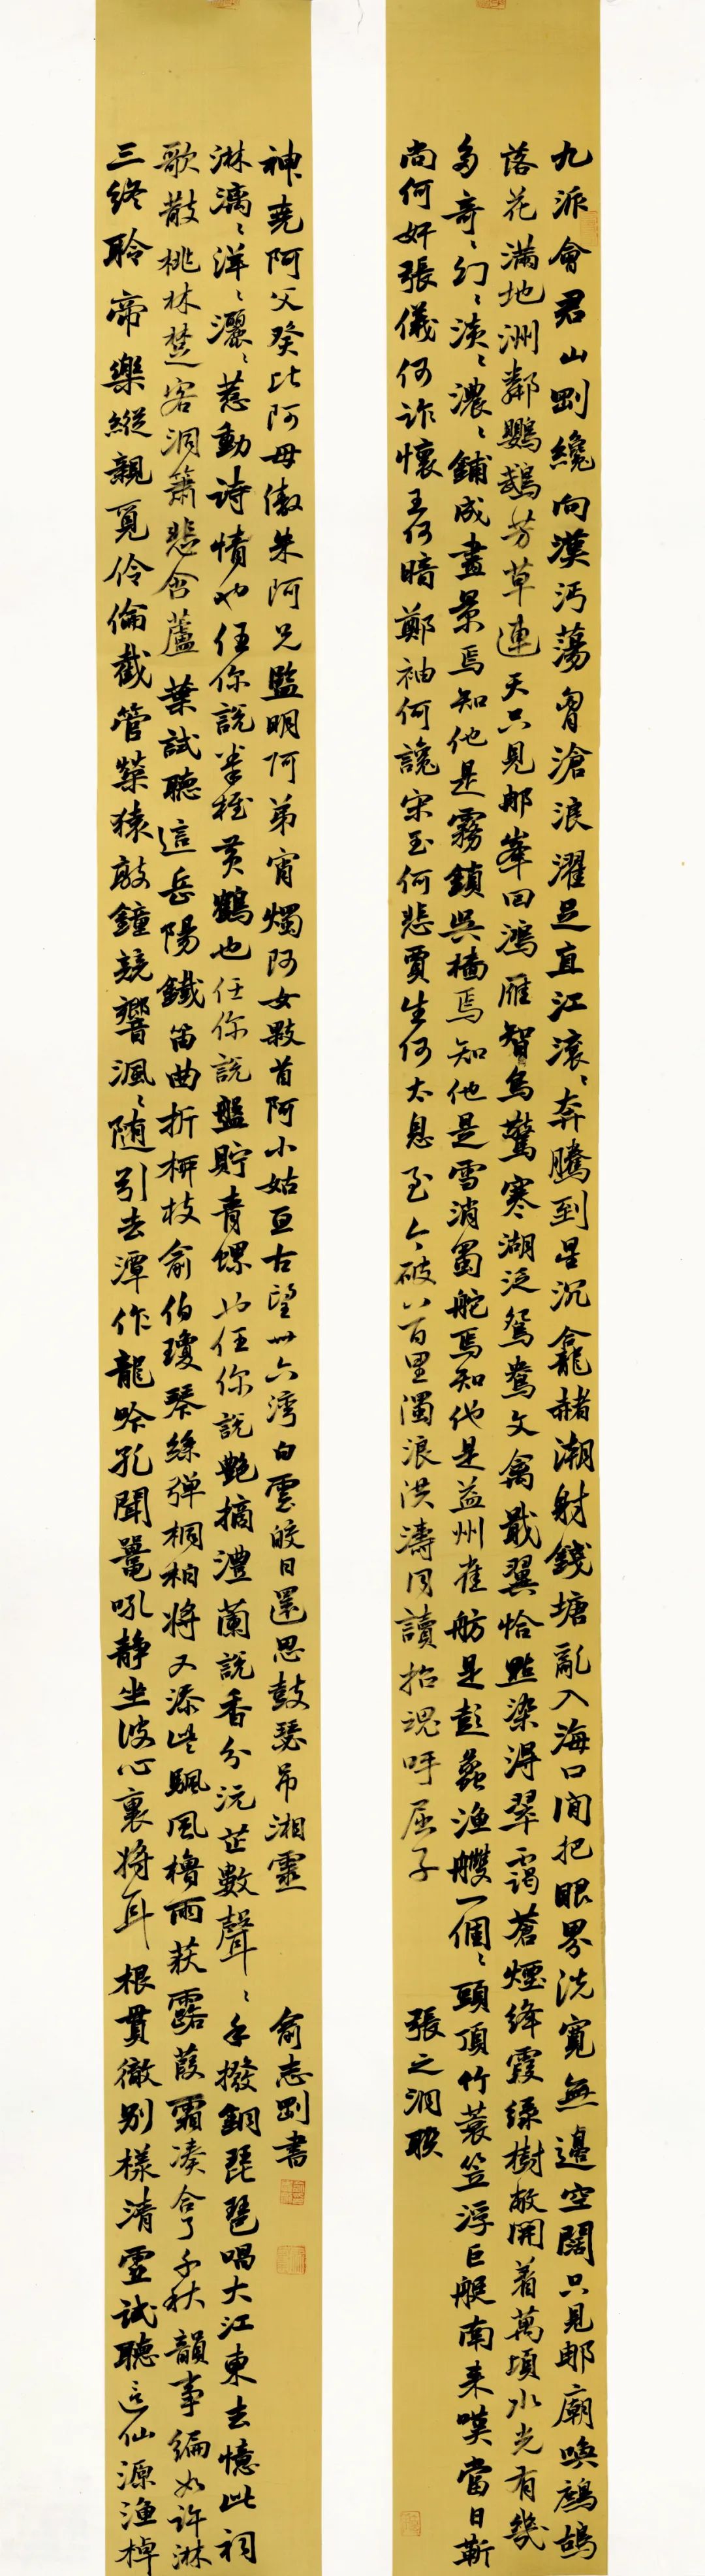 九派會君山剛纔向漢沔蕩胷滄浪濯足直江滾々奔騰到星沉龕赭潮射錢塘亂入海口間把眼界洗寬無邊空闊只見那廟喚鷓鴣
落花滿地洲鄰鸚鵡芳草連天只見那峯回鴻雁智鳥驚寒湖泛鴛鴦文禽戢翼恰點染得翠靄蒼煙絳霞綠樹敞開着萬頃水光有幾
多奇々幻々淡々濃々鋪成畫景焉知他是霧鎖吳檣焉知他是雪消蜀舵焉知他是益州雀舫是彭蠡漁艭一個々頭頂竹蓑笠浮巨艇南來嘆當日靳
尚何奸張儀何詐懷王何暗鄭袖何讒宋玉何悲賈生何太息至今破八百里濁浪洪濤同讀招魂呼屈子
張之洞联
三終聆帝樂縱親覓伶倫截管榮猿敲鐘競響渢々隨引去潭作龍吟孔聞鼉吼靜坐波心裏將耳根貫徹別樣清虛試聽這仙源漁棹
歌散桃林楚客洞簫悲含蘆葉試聽這岳陽鐵笛曲折柳枝俞伯瓊琴絲彈桐柏將又添些颿風櫓雨荻露葭霜湊合了千秋韻事編如許淋
淋漓々洋々灑々惹動詩情也任你說拳椎黃鶴也任你說盤貯青螺也任你說艷摘澧蘭說香分沅芷數聲々手撥銅琵琶唱大江東去憶此祠
神堯阿父癸比阿母傲朱阿兄監明阿弟宵燭阿女敤首阿小姑亘古望卅六灣白雲皎日還思鼓瑟吊湘靈
俞志剛書